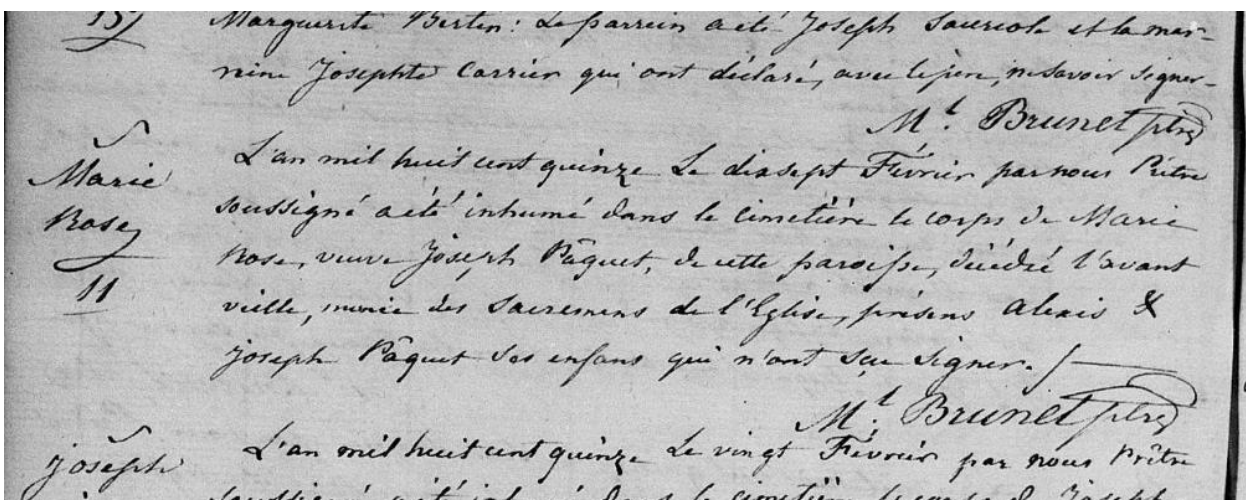 15
Marguerite Bertin: Le parrein a été Joseph Sauriole et la mar-
reine Josephte Carrier qui ont déclaré, avec le pere, ne savoir signer-
Mt. Brunet ptre
Marie
Rose
11
L'an mil huit cent quinze Le dixsept Février par nous Prêtre
soussigné a été inhumé dans le cimetière le corps de Marie
Rose, veuve Joseph Pâquet, de cette paroisse, décédée l'avant
vielle, munie des Sacremens de l'Eglise, présens Alexis &
Joseph Pâquet ses enfans qui n'ont seu signer.
Mt. Brunet ptre
Joseph
L'an mil huit cent quinze Le vingt Février par nous Prêtre
soussigné a été inhumé dans le cimetière le corps de Joseph